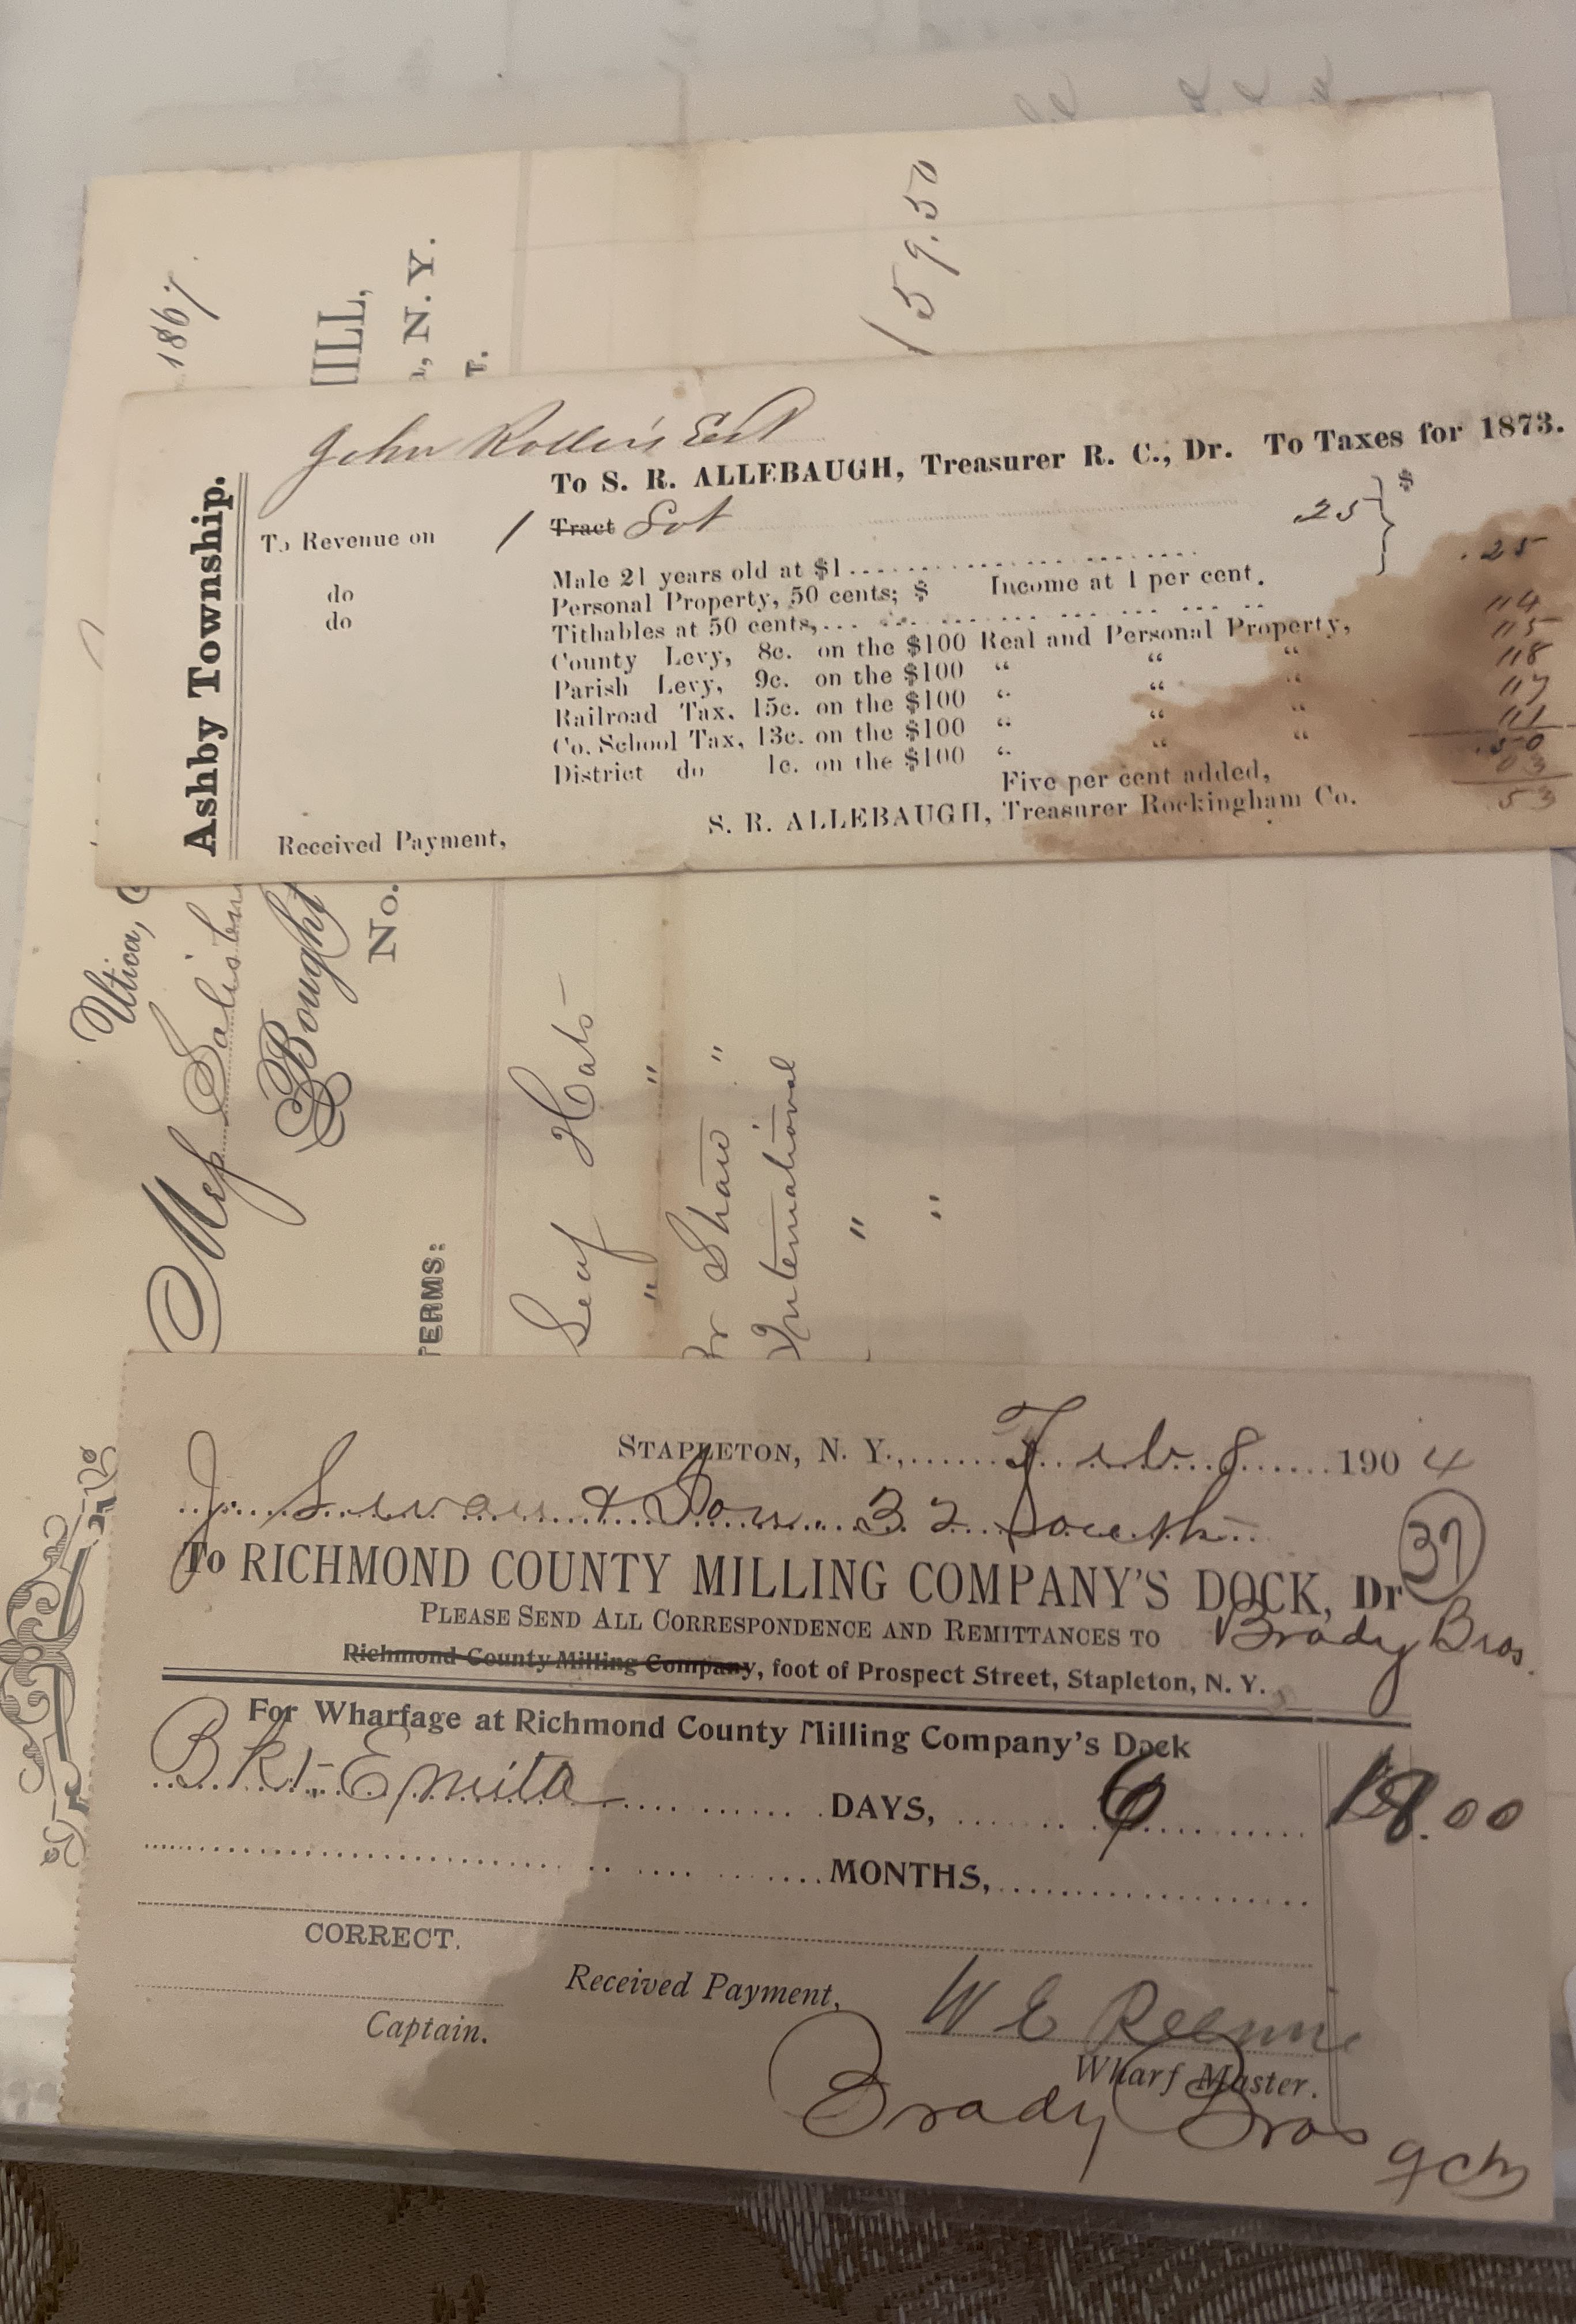 1867
159.50
ILL,
, N. Y.
T.
John Roller's Est
To S. R. ALLEBAUGH, Treasurer R. C., Dr. To Taxes for 1873.
Ashby Township.
To Revenue on 1 Tract Lot .25 } $ .25
do Male 21 years old at $1
do Personal Property, 50 cents; $ Income at 1 per cent.
Tithables at 50 cents,
County Levy, 8c. on the $100 Real and Personal Property,
Parish Levy, 9c. on the $100 “ “ “
Railroad Tax, 15c. on the $100 “ “ “
Co. School Tax, 13c. on the $100 “ “ “
District do 1c. on the $100 “ “ “
.50
Five per cent added, 03
53
S. R. ALLEBAUGH, Treasurer Rockingham Co.
Received Payment,
Utica,
Bought
No.
TERMS:
Leaf Hats
" "
Shaw "
International
"
"
STAPLETON, N. Y., Feb 8 1904
J. Swan & Son 32 South
37
To RICHMOND COUNTY MILLING COMPANY'S DOCK, Dr
PLEASE SEND ALL CORRESPONDENCE AND REMITTANCES TO Brady Bros.
Richmond County Milling Company, foot of Prospect Street, Stapleton, N. Y.
For Wharfage at Richmond County Milling Company's Dock
Bkt. Emita DAYS, 6 18.00
MONTHS,
CORRECT.
Received Payment,
W E
Captain.
Wharf Master.
Brady Bros